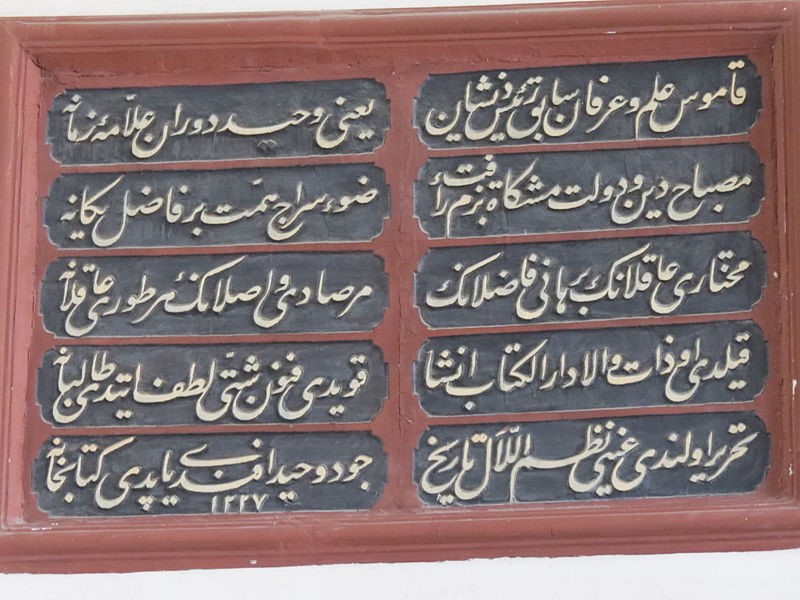 قاموس علم و عرفان سابق رئیس ذیشان
یعنی وحید دوران علّامهٔ زمانه
مصباح دین و دولت مشکاة بزم رأفت
ضوء سراج همّت بر فاضل یکانه
مختاری عاقلانك برهانی فاضلانك
مرصادی واصلانك هر طوری عاقلانه
قیلدی او ذات والا دار الکتاب انشا
قویدی فنون شتّی لطف ایتدی طالبانه
تحریر اولندی عینی نظم اللآل تاریخ
جود وحید افندی یاپدی کتابخانه
١٢٢٧